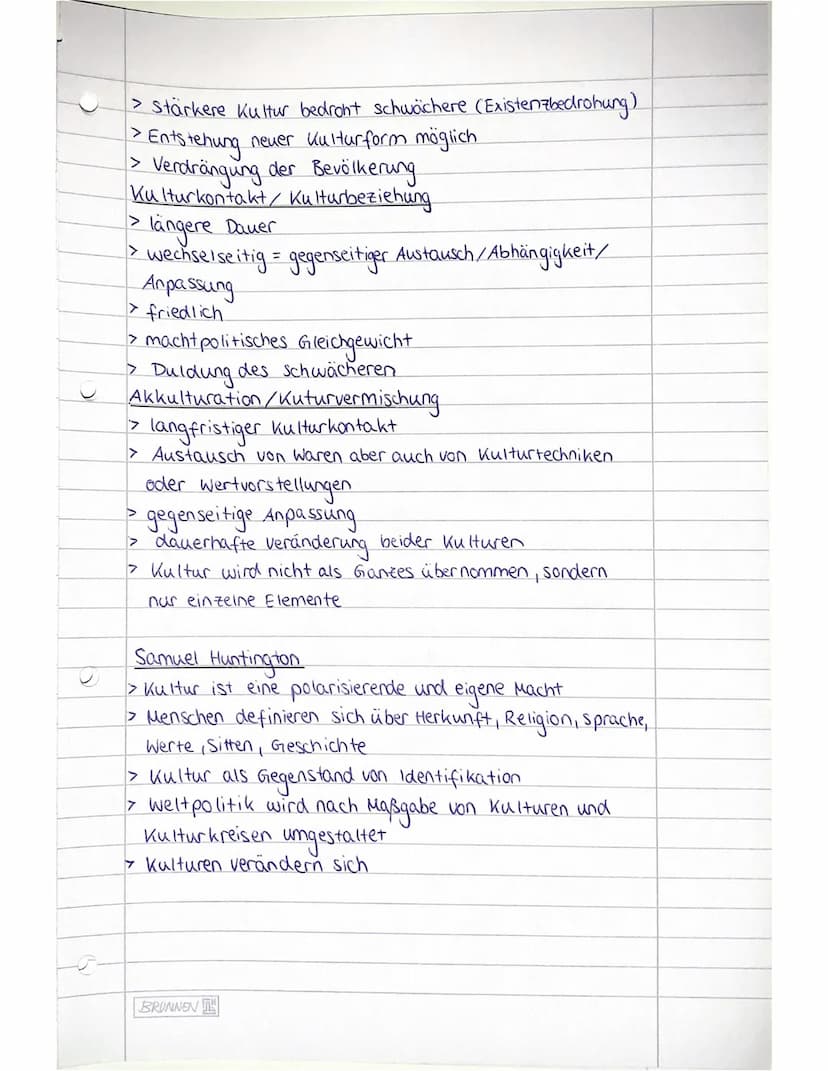 > Stärkere Kultur bedroht schwächere (Existenzbedrohung)
> Entstehung neuer Kulturform möglich
> Verdrängung der Bevölkerung
Kulturkontakt/Kulturbeziehung
> längere Dauer
> wechselseitig = gegenseitiger Austausch/Abhängigkeit/
Anpassung
> friedlich
> machtpolitisches Gleichgewicht
> Duldung des Schwächeren
Akkulturation/Kuturvermischung
> langfristiger Kulturkontakt
> Austausch von Waren aber auch von Kulturtechniken
oder Wertvorstellungen
> gegenseitige Anpassung
> dauerhafte Veränderung beider Kulturen
> Kultur wird nicht als Ganzes übernommen, sondern
nur einzelne Elemente
Samuel Huntington
> Kultur ist eine polarisierende und eigene Macht
> Menschen definieren sich über Herkunft, Religion, Sprache,
Werte, Sitten, Geschichte
> Kultur als Gegenstand von Identifikation
> Weltpolitik wird nach Maßgabe von Kulturen und
Kulturkreisen umgestaltet
> Kulturen verändern sich
BRUNNEN